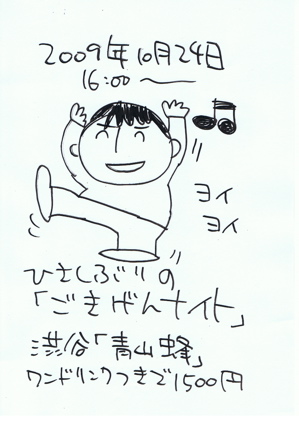 2009年10月24日
16:00〜
ヨイ
ヨイ
ひさしぶりの
「ごきげんナイト」
渋谷「青山蜂」
ワンドリンクつきで1500円